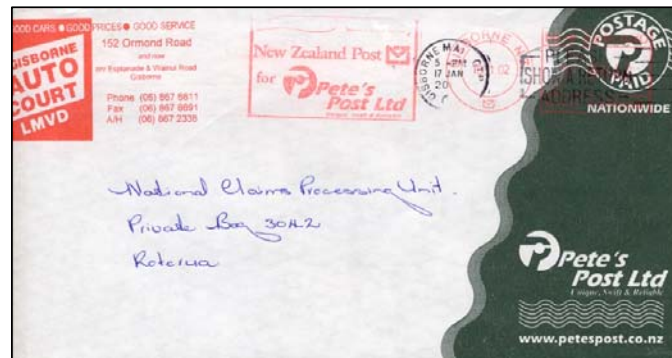 GOOD CARS ● GOOD PRICES ● GOOD SERVICE
GISBORNE
AUTO
COURT
LMVD
152 Ormond Road
and now
Esplanade & Wainui Road
Gisborne
Phone (06) 867 6611
Fax (06) 867 8691
A/H (06) 867 2336
New Zealand Post
for Pete's
Post Ltd
Unique, Swift & Reliable
GISBORNE MAIL
5 -PM
17 JAN
20
ADDRESS
POSTAGE
PAID
NATIONWIDE
National Claims Processing Unit.
Private Bag 3042
Rotorua
Pete's
Post Ltd
Unique, Swift & Reliable
www.petespost.co.nz